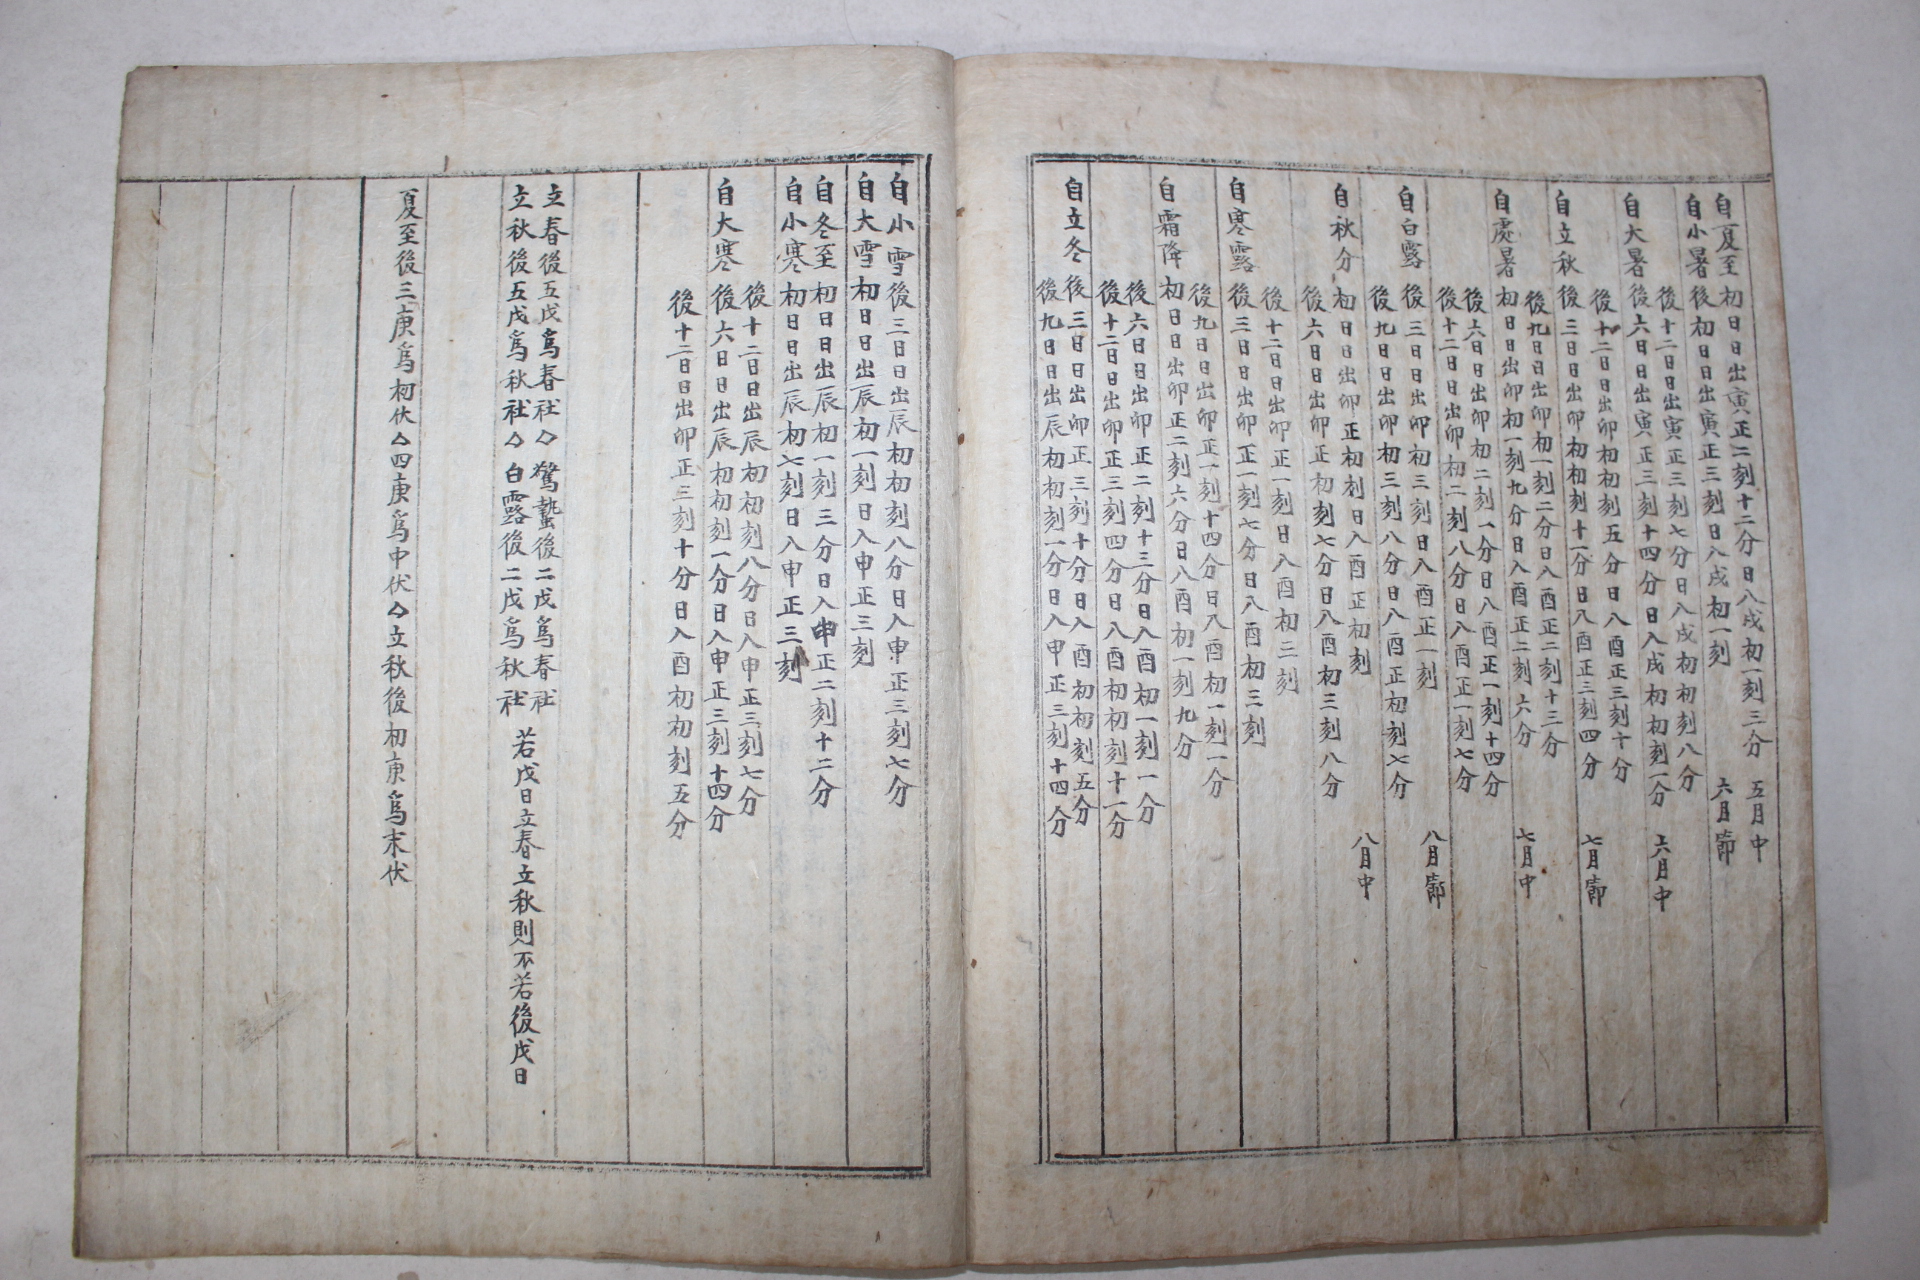 自夏至初日日出寅正二刻十二分日入戌初一刻三分 五月中
自小暑初日日出寅正三刻日入戌初一刻 六月節
後十二日日出寅正三刻七分日入戌初初刻八分
自大暑後六日日出寅正三刻十四分日入戌初初刻一分 六月中
後十二日日出卯初初刻五分日入酉正三刻十分
自立秋後三日日出卯初初刻十一分日入酉正三刻四分 七月節
後九日日出卯初一刻二分日入酉正二刻十三分
自處暑初日日出卯初一刻九分日入酉正二刻六分 七月中
後六日日出卯初二刻一分日入酉正一刻十四分
後十二日日出卯初二刻八分日入酉正一刻七分
自白露後三日日出卯初三刻日入酉正一刻 八月節
後九日日出卯初三刻八分日入酉正初刻七分
自秋分初日日出卯正初刻日入酉正初刻 八月中
後六日日出卯正初刻七分日入酉初三刻八分
後十二日日出卯正一刻日入酉初三刻
自寒露後三日日出卯正一刻七分日入酉初三刻
後九日日出卯正一刻十四分日入酉初一刻一分
自霜降初日日出卯正二刻六分日入酉初一刻九分
後六日日出卯正二刻十三分日入酉初一刻一分
後十二日日出卯正三刻四分日入酉初初刻十一分
自立冬後三日日出卯正三刻十分日入酉初初刻五分
後九日日出辰初初刻一分日入申正三刻十四分
自小雪後三日日出辰初初刻八分日入申正三刻七分
自大雪初日日出辰初一刻日入申正三刻
自冬至初日日出辰初一刻三分日入申正二刻十二分
自小寒初日日出辰初七刻日入申正三刻
後十二日日出辰初初刻八分日入申正三刻七分
自大寒後六日日出辰初初刻一分日入申正三刻十四分
後十二日日出卯正三刻十分日入酉初初刻五分
立春後五戊爲春社◇驚蟄後二戊爲春社
立秋後五戊爲秋社◇白露後二戊爲秋社
若戊日立春立秋則不若後戊日
夏至後三庚爲初伏◇四庚爲中伏◇立秋後初庚爲末伏